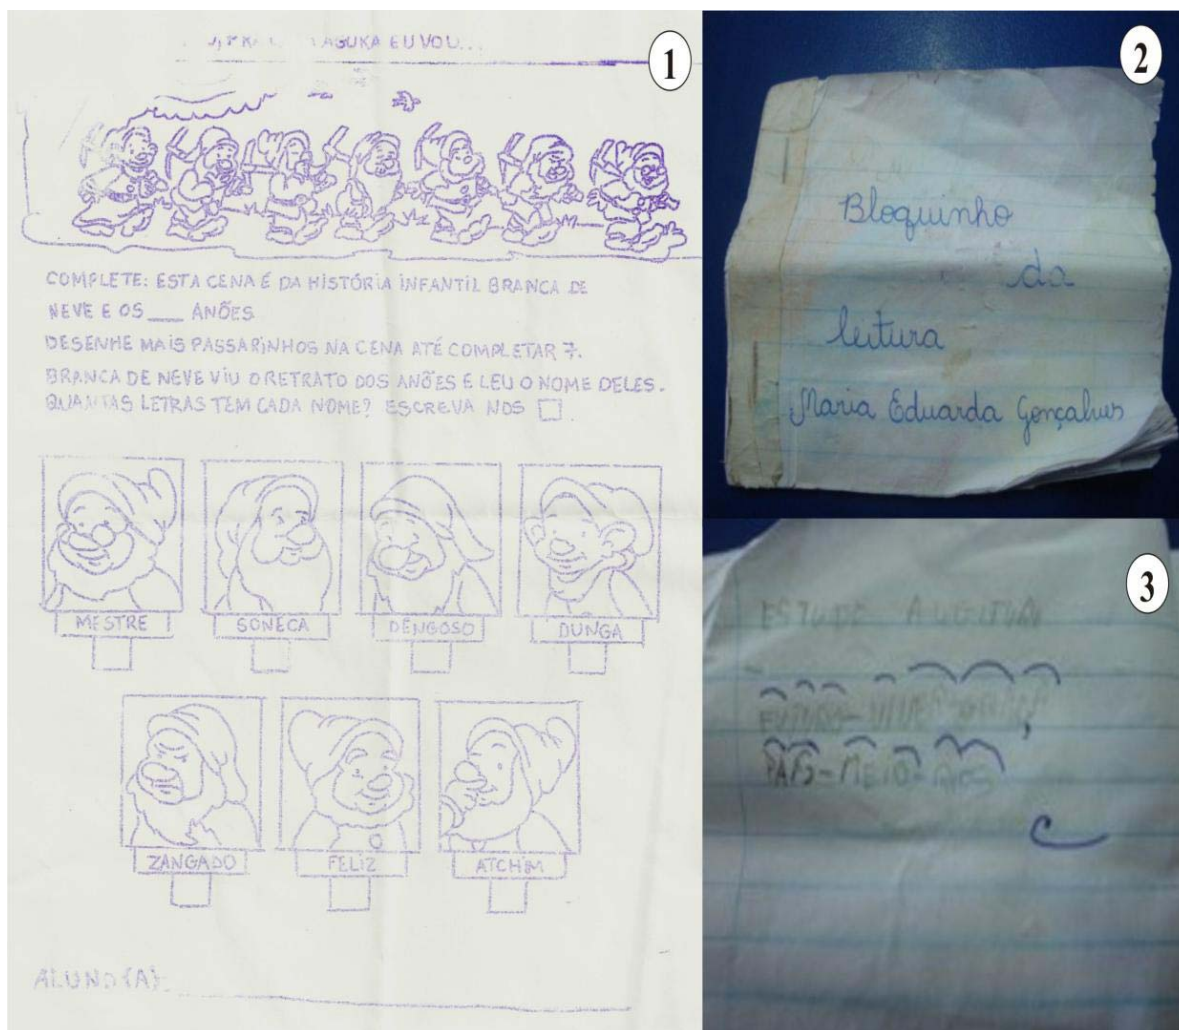 1
EU VOU...
COMPLETE: ESTA CENA É DA HISTÓRIA INFANTIL BRANCA DE
NEVE E OS ___ ANÕES
DESENHE MAIS PASSARINHOS NA CENA ATÉ COMPLETAR 7.
BRANCA DE NEVE VIU O RETRATO DOS ANÕES E LEU O NOME DELES.
QUANTAS LETRAS TEM CADA NOME? ESCREVA NOS □.
MESTRE SONECA DENGOSO DUNGA
ZANGADO FELIZ ATCHIM
ALUNO(A):
2
Bloquinho
da
leitura
Maria Eduarda Gonçalves
3
ESTUDE A LEITURA
MEIO